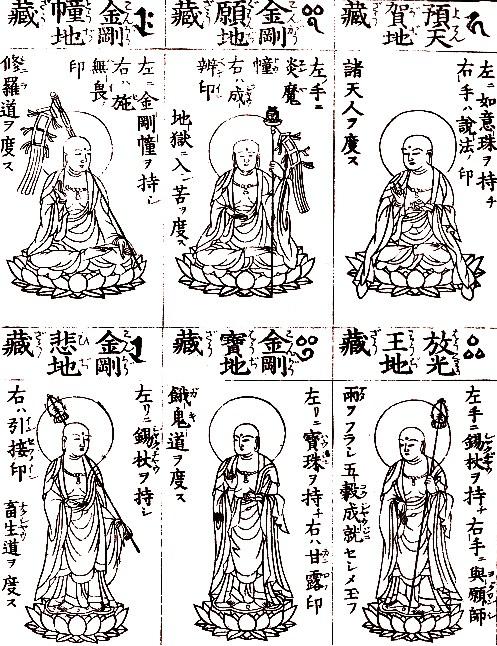 預天
賀地
藏
左ニ如意珠ヲ持チ
右手ハ説法ノ印
諸天人ヲ度ス
金剛
願地
藏
左ノ手ニ
炎魔
幢
右ハ成
辨印
地獄ニ入苦ヲ度ス
金剛
幢地
藏
左ニ金剛幢ヲ持シ
右ハ施
無畏
印
修羅道ヲ度ス
放光
王地
藏
左手ニ錫杖ヲ持チ右手ニ與願師
雨ヲフラシ五穀成就セシメ玉フ
金剛
寶地
藏
左リニ寶珠ヲ持チ右ハ甘露印
餓鬼道ヲ度ス
金剛
悲地
藏
左リニ錫杖ヲ持シ
右ハ引接印
畜生道ヲ度ス